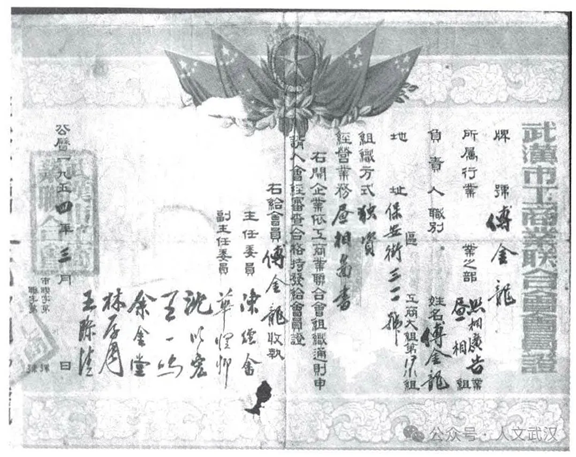 武漢市工商業联合會會員證
牌號 傅金龍
所属行業 業之部 照相廣告業 畳相組
負責人職別 姓名 傅金龍
地址 保安街三二號 區 工商大組第 組
組織方式 独資
經營業務 畳相
右開企業依工商業聯合會組織通則申
請入會經審查合格特發給會員證
右給會員 傅金龍 收執
主任委員 陳經畬
副主任委員 華煜卿
王一鳴
余金堂
公曆一九五四年三月 日
公众号·人文武汉